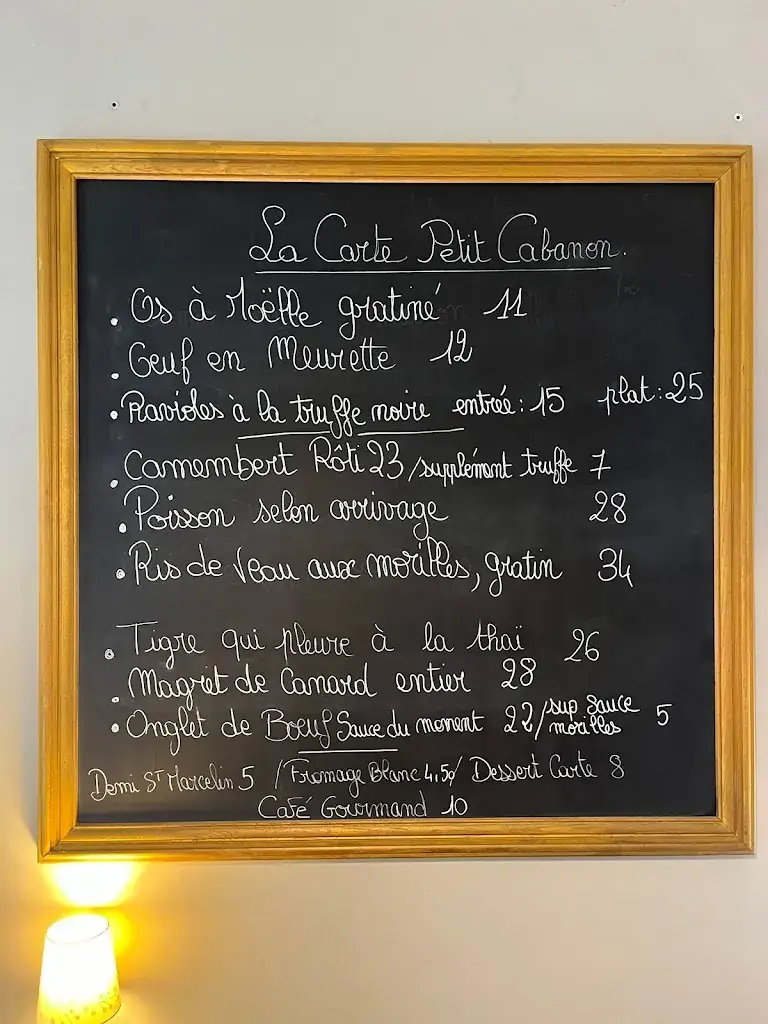 La Carte Petit Cabanon.
. Os à Moëlle gratiné 11
. Oeuf en Meurette 12
. Ravioles à la truffe noire entrée : 15 plat : 25
. Camembert Rôti 23 / supplément truffe 7
. Poisson selon arrivage 28
. Ris de Veau aux morilles, gratin 34
. Tigre qui pleure à la thaï 26
. Magret de Canard entier 28
. Onglet de Boeuf Sauce du moment 22 / sup Sauce morilles 5
Demi St Marcelin 5 / Fromage Blanc 4,50 / Dessert Carte 8
Café Gourmand 10